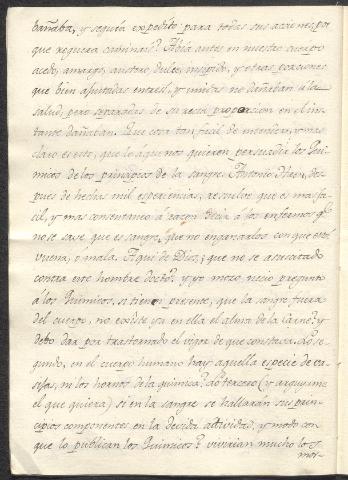 dañaba, y seguía expedito para todas sus acciones, por
que requiera caminais? Abía antes en nuestro cuerpo
acedo, amargo, austero, dulce, insipido, y otras porciones
que bien ajuntadas entre sí, y unidas no dañaban â la
salud, pero separadas de su recta proporcion en el ins-
tante dañaban. Que cosa tan facil de entender, y mas
claro es esto, que lo que nos quieren persuadir los Qui-
micos de los principios de la sangre. Antonio Dien, des-
pues de hechas mil experiencias, resuelve que es mas fa-
cil, y mas consentaneo à razon decir à los enfermos q.e
no se save, que es sangre, que no engañarlos con que está
buena, o mala. Aqui de Dios; que no se à suscitado
contra este hombre docto? y yo mozo, necio pregunto
â los Quimicos, si tienen presente, que la sangre, fuera
del cuerpo, no existe ya en ella el alma de la carne? y
debo dar por trastornado el vigor de que constava. Lo se-
gundo, en el cuerpo humano hay aquella especie de va-
sijas, ni los hornos de la quimica? Lo tercero (y arguyame
el que quiera) si en la sangre se hallarán sus prin-
cipios componentes en la devida actividad, y modo con
que lo publican los Quimicos? vivirian mucho los
mor-